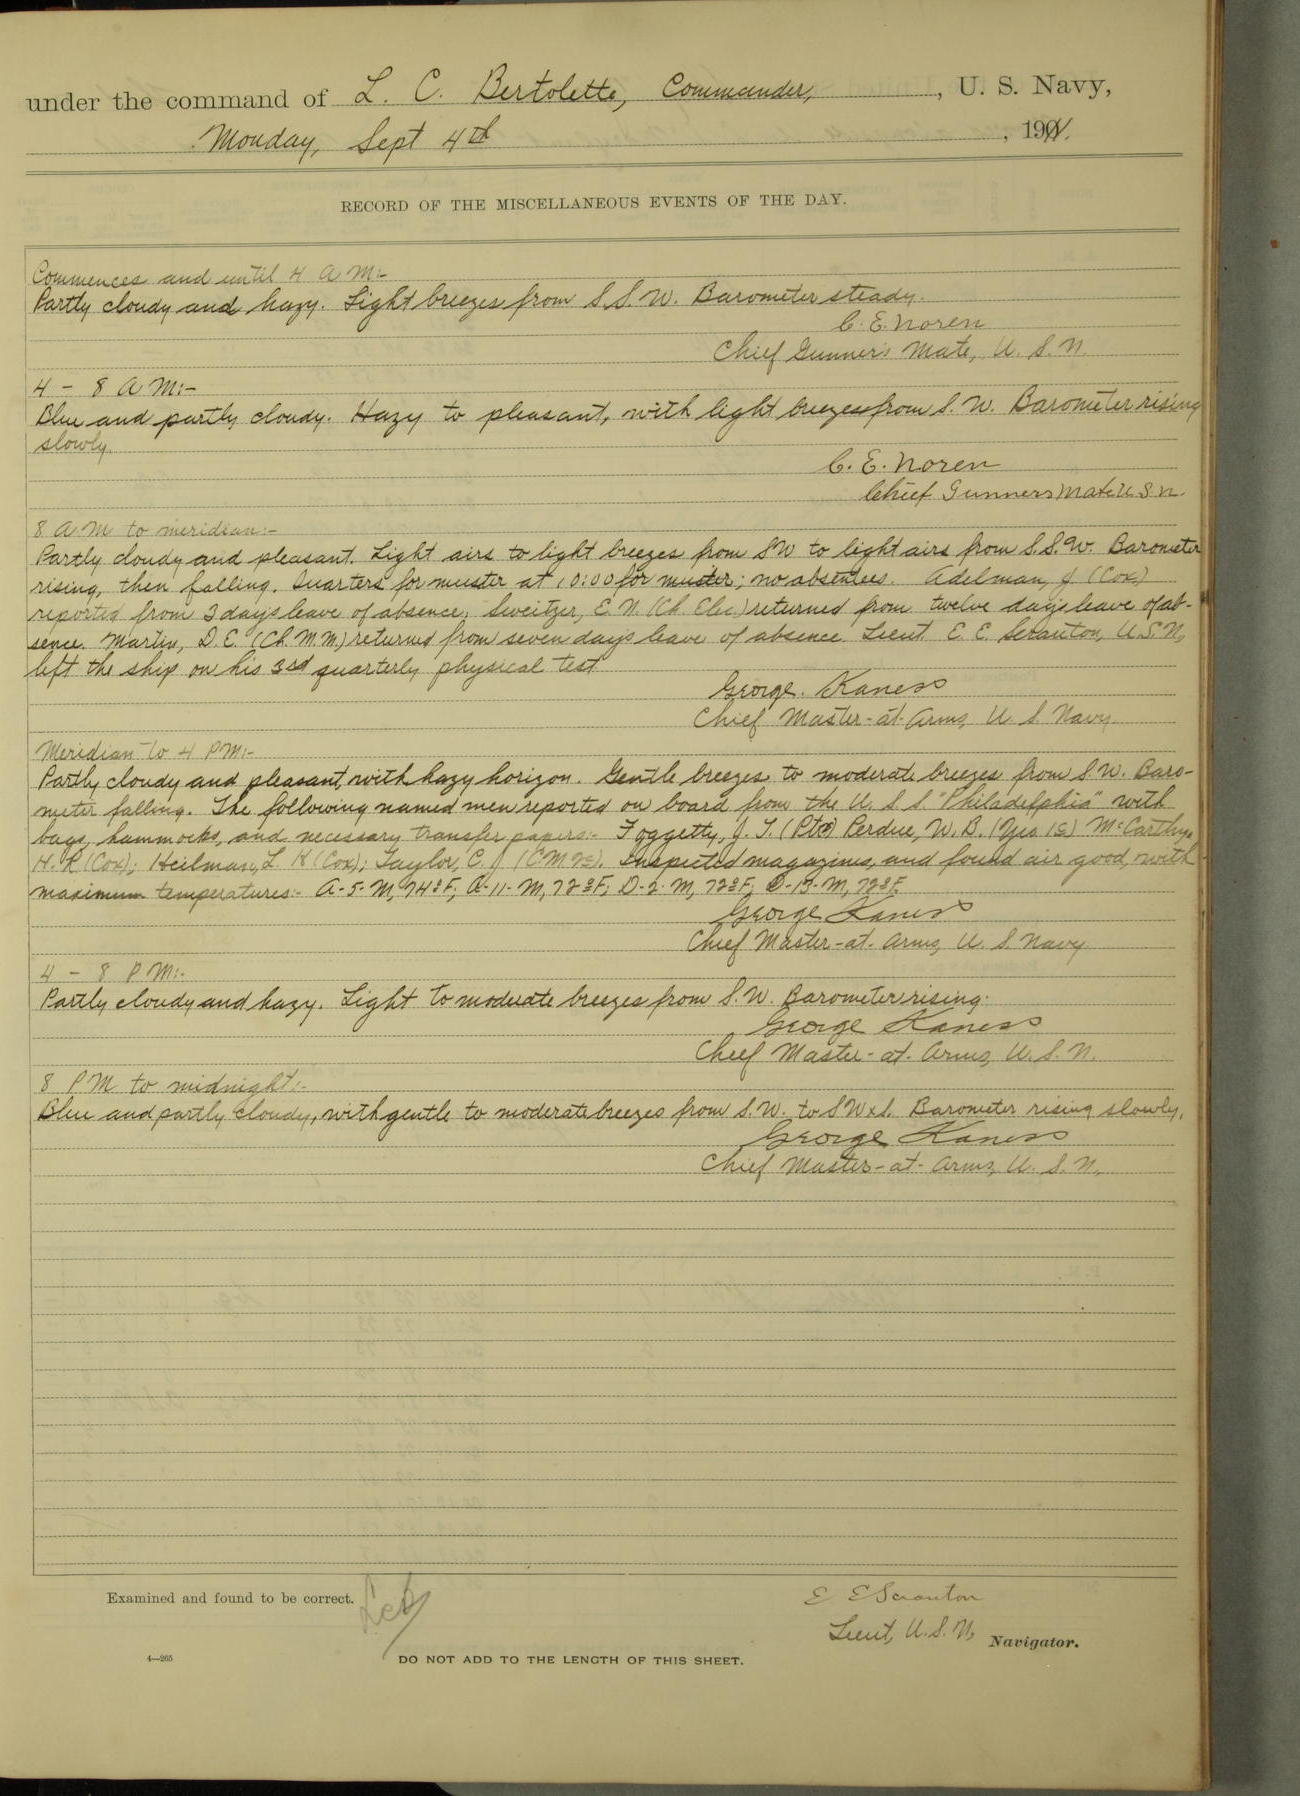 under the command of L. C. Bertolette, Commander, , U. S. Navy,
Monday, Sept 4th , 1911.
RECORD OF THE MISCELLANEOUS EVENTS OF THE DAY.
Commences and until 4 A M:-
Partly cloudy and hazy. Light breezes from S.S.W. Barometer steady.
C. E. Noren
Chief Gunner's Mate, U. S. N.
4 - 8 A M:-
Blue and partly cloudy. Hazy to pleasant, with light breezes from S. W. Barometer rising
slowly.
C. E. Noren
Chief Gunners Mate U S N.
8 A M to meridian:-
Partly cloudy and pleasant. Light airs to light breezes from SW to light airs from S.S.W. Barometer
rising, then falling. Quarters for muster at 10:00 for muster; no absentees. Adelman, J. (Cox)
reported from 3 days leave of absence. Sweitzer, E. N. (Ch. Elec.) returned from twelve days leave of ab-
sence. Martin, D. E. (Ch. M. M.) returned from seven days leave of absence. Lieut. E. E. Scranton, U. S. N,
left the ship on his 3rd quarterly physical test
George. Kaness
Chief Master-at-Arms, U. S. Navy.
Meridian to 4 P M:-
Partly cloudy and pleasant, with hazy horizon. Gentle breezes to moderate breezes from S. W. Baro-
meter falling. The following named men reported on board from the U. S. S. "Philadelphia" with
bags, hammocks, and necessary transfer papers:- Foggetty, J. T. (Ptr) Perdue, W. B. (Yeo 1c) McCarthy,
H. R (Cox); Heilman, L. K (Cox); Taylor, C. J. (CM 2c). Inspected magazines, and found air good, with
maximum temperatures:- A-5-M, 74°F; A-11-M, 72°F; D-2-M, 72°F; D-13-M, 72°F.
George Kaness
Chief Master-at-Arms, U. S. Navy
4 - 8 P M:-
Partly cloudy and hazy. Light to moderate breezes from S. W. Barometer rising.
George Kaness
Chief Master-at-Arms, U. S. N.
8 P M to midnight:-
Blue and partly cloudy, with gentle to moderate breezes from S. W. to SWxS. Barometer rising slowly.
George Kaness
Chief Master-at-Arms, U. S. N.
Examined and found to be correct. LCB
E E Scranton
Lieut, U. S. N, Navigator.
4—265
DO NOT ADD TO THE LENGTH OF THIS SHEET.